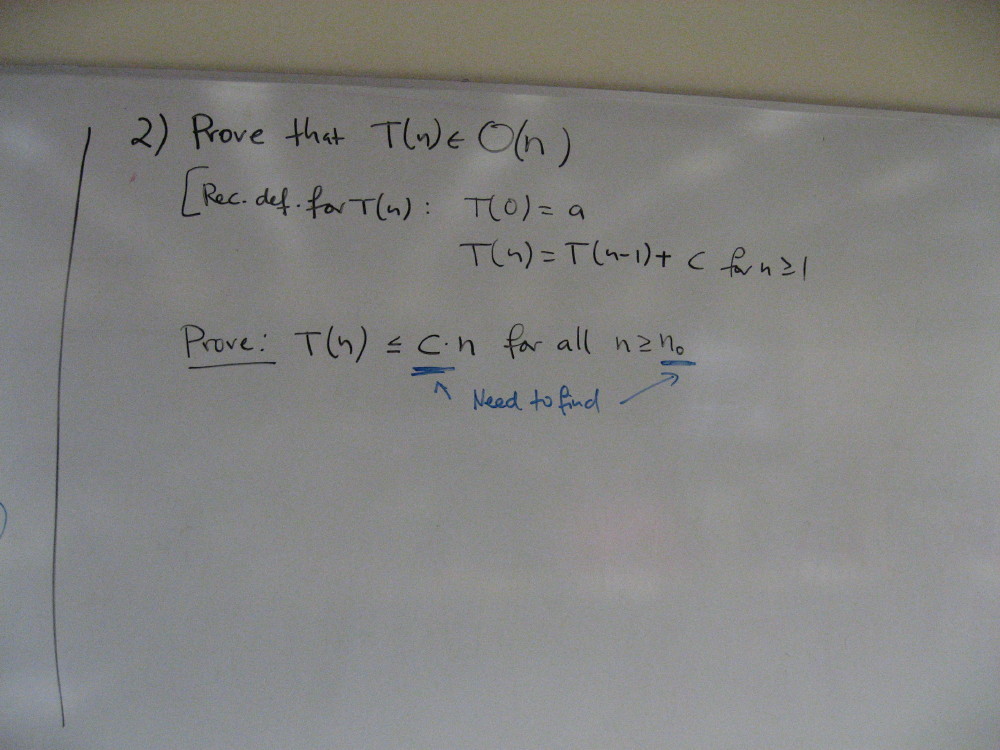 2) Prove that T(n) ∈ O(n)
[Rec. def. for T(n): T(0) = a
T(n) = T(n-1) + c for n ≥ 1
Prove: T(n) ≤ C·n for all n ≥ n₀
Need to find